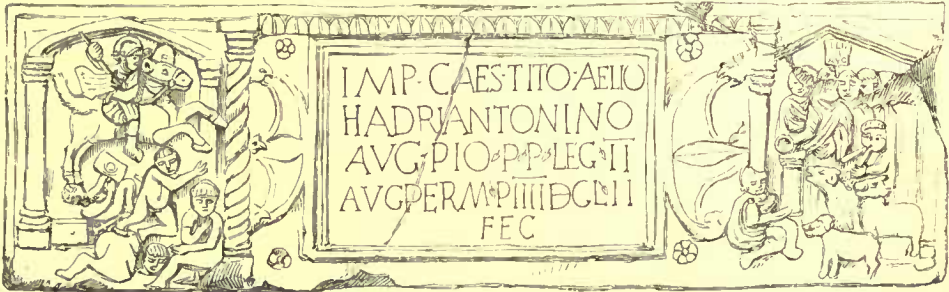 IMP·CAES·TITO·AELIO
HADRI ANTONINO
AVG·PIO·P·P·LEG·II
AVG PER·M·P·IIIIDCLII
FEC